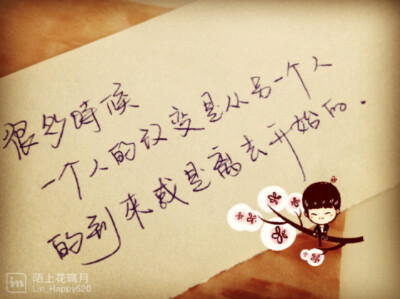 很多時候
一个人的改变是从另一个人
的到來或是离去开始的.
陌上花璃月
Lin_Happy520